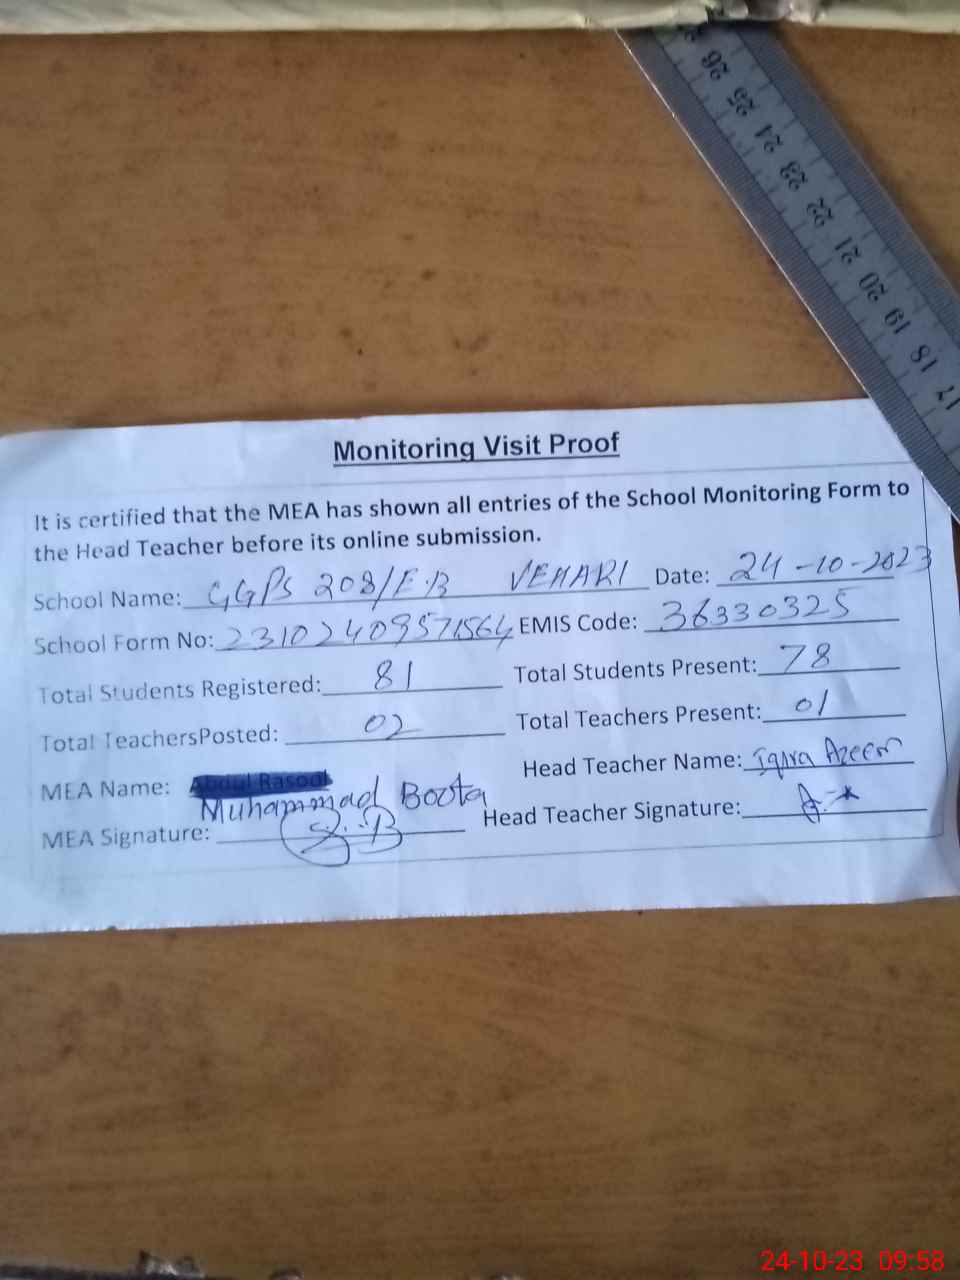 26 25 24 23 22 21 20 19 18 17
Monitoring Visit Proof
It is certified that the MEA has shown all entries of the School Monitoring Form to
the Head Teacher before its online submission.
School Name: GGPS 208/E.B VEHARI Date: 24-10-2023
School Form No: 23102409571564 EMIS Code: 36330325
Total Students Registered: 81 Total Students Present: 78
Total TeachersPosted: 02 Total Teachers Present: 01
MEA Name: Abdul Rasool Head Teacher Name: Iqra Azeem
Muhammad Boota
MEA Signature: Head Teacher Signature:
24-10-23 09:58